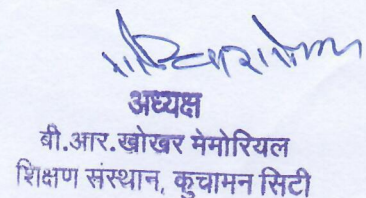 अध्यक्ष
बी.आर.खोखर मेमोरियल
शिक्षण संस्थान, कुचामन सिटी